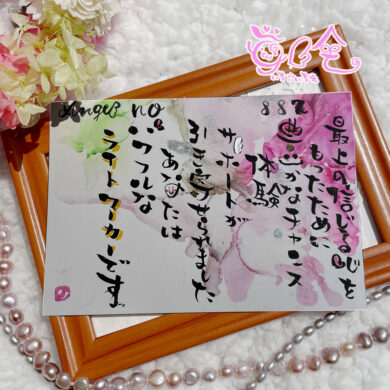 Angel no.
最上の信じる心を
もったために
豊かなチャンス
体験
サポートが
引き寄せられました
あなたは
パワフルな
ライトワーカーです。